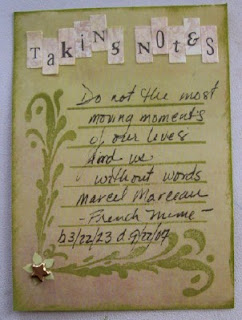 TAKiNG NOT&S
Do not the most
moving moments
of our lives
find us
without words
Marcel Marceau
-French Mime-
b3/22/23 d.9/22/07